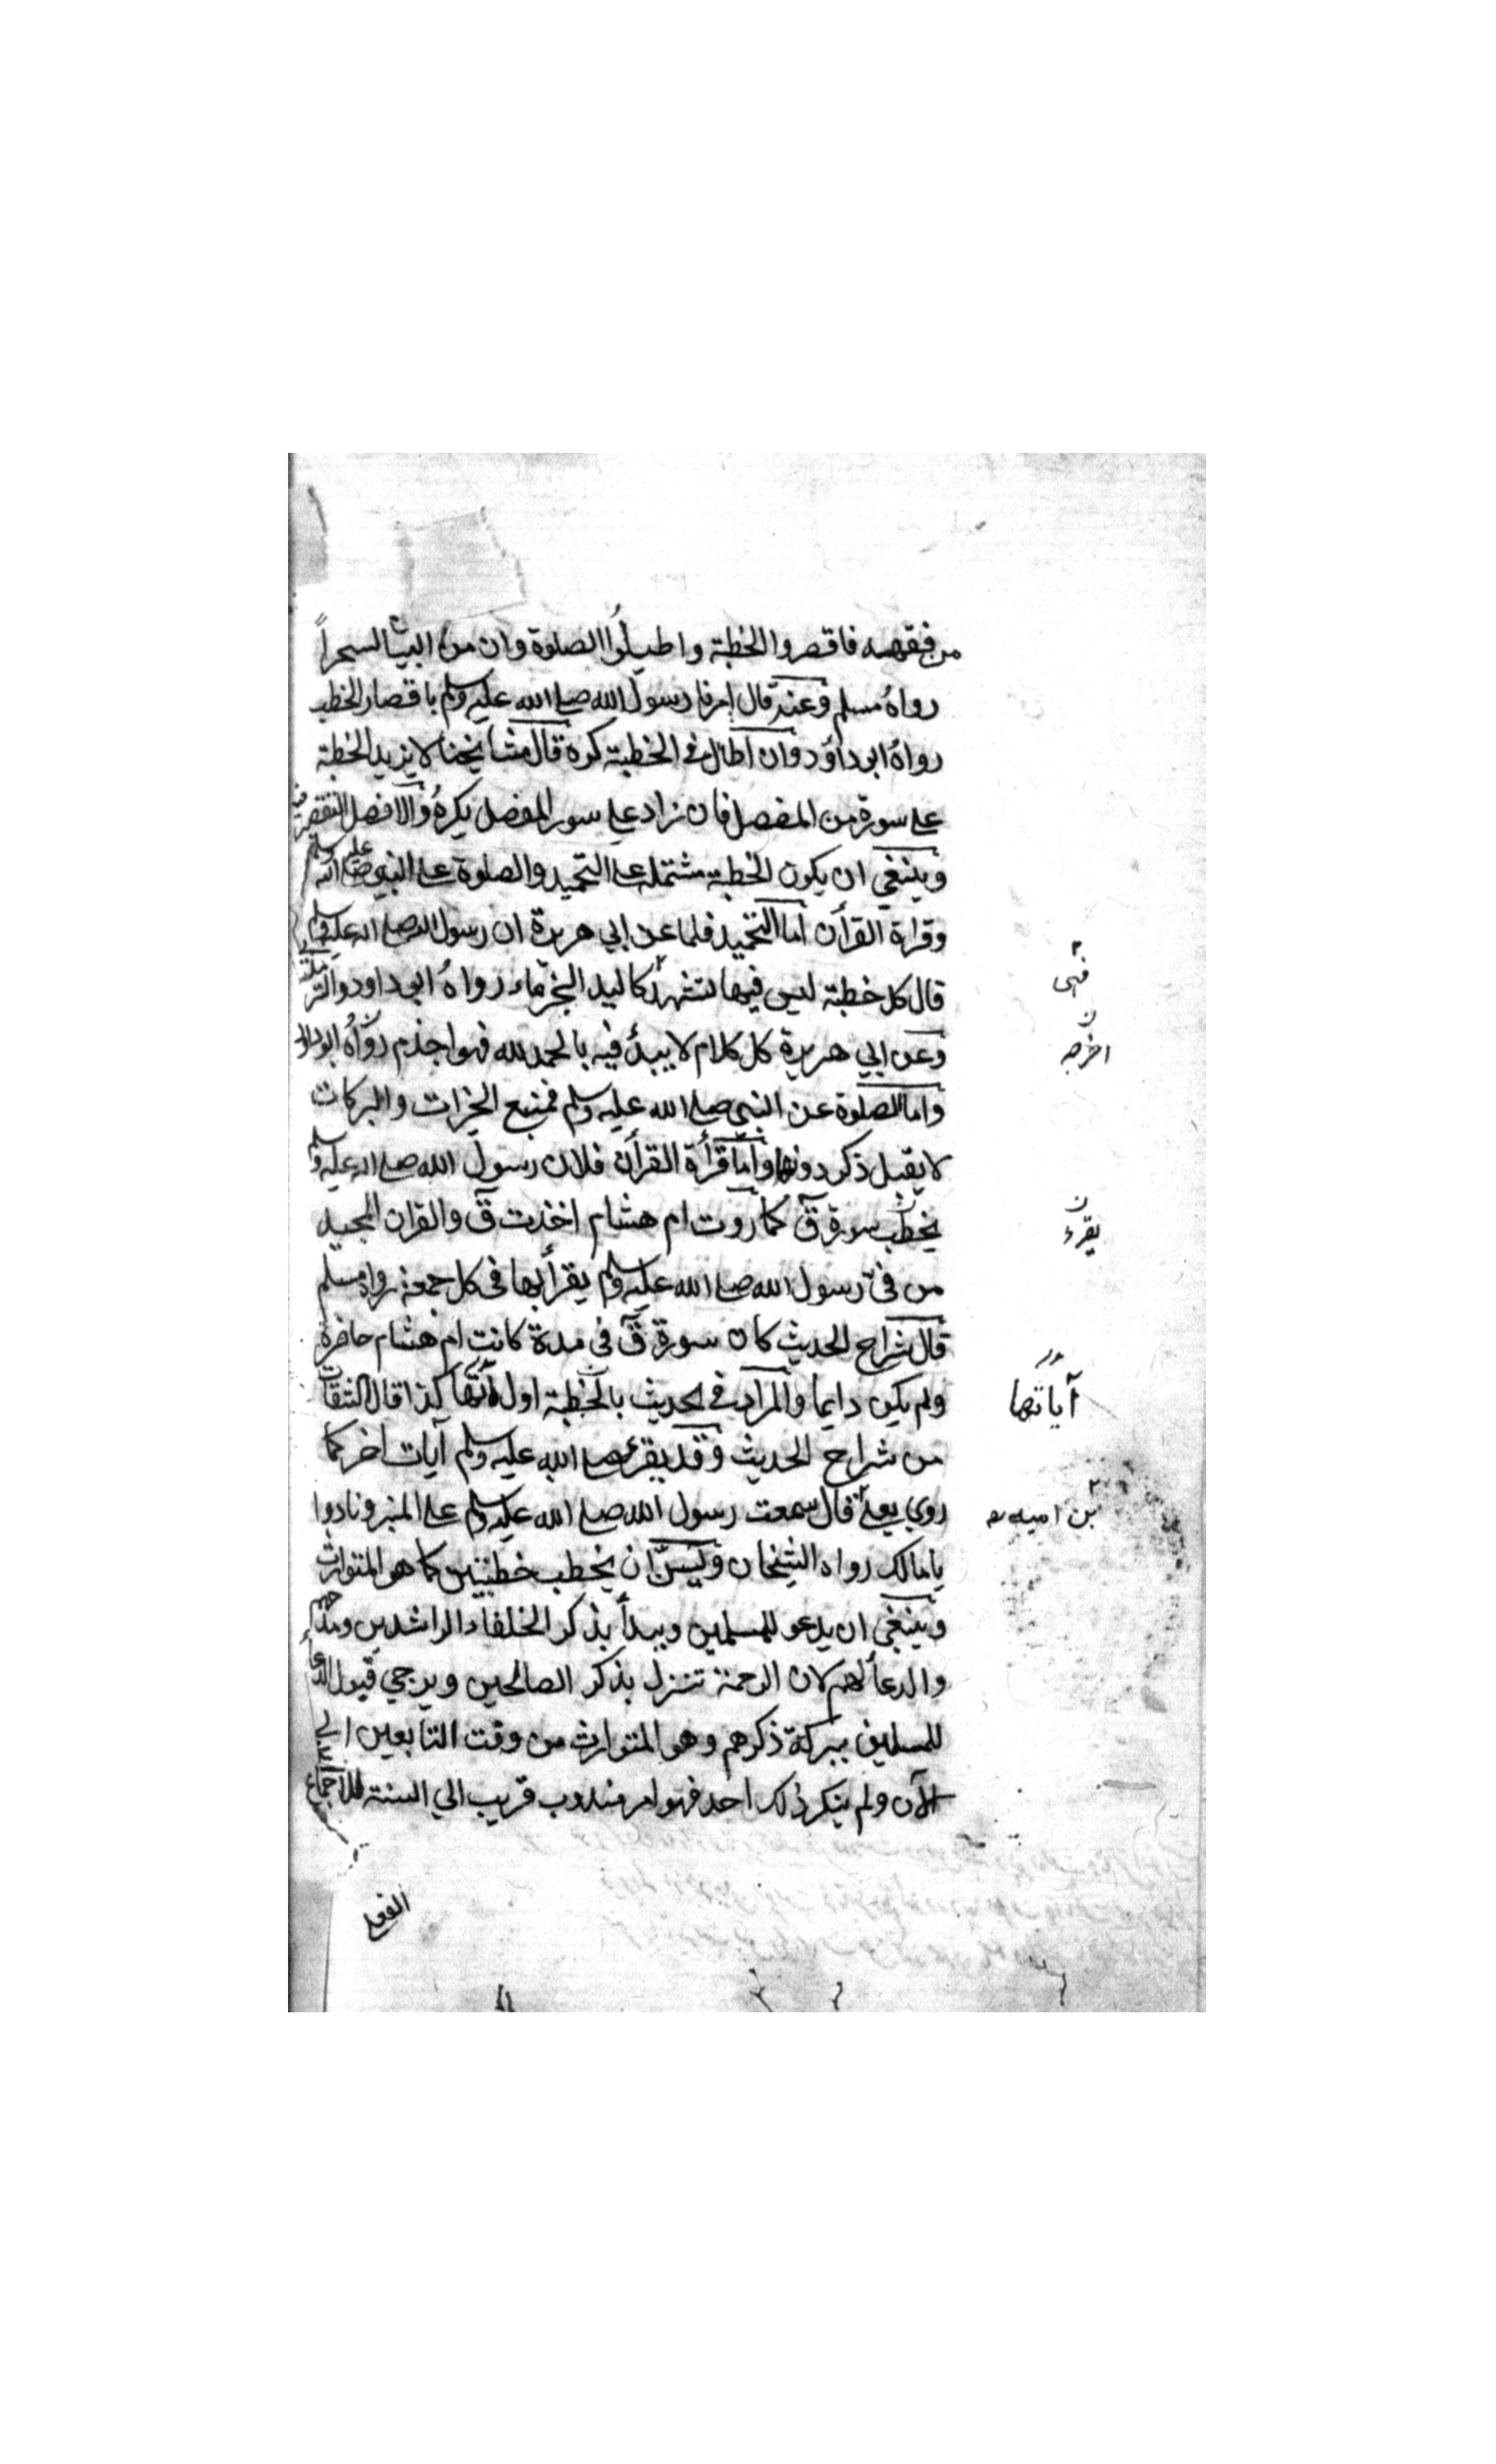 من فقهه فاقصروا الخطبة واطيلوا الصلوة وان من البيان لسحراً
رواه مسلم وعنه قال امرنا رسول الله صلى الله عليه وسلم باقصار الخطب
رواه ابو داؤد وان اطال في الخطبة كره قال مشايخنا لا يزيد الخطبة
على سورة من المفصل فان زاد على سور المفصل يكره والافضل التقصير
وينبغي ان يكون الخطبة مشتملة على التحميد والصلوة على النبي صلى الله عليه وسلم
وقراة القرأن اما التحميد فلما عن ابي هريرة ان رسول الله صلى الله عليه وسلم
قال كل خطبة ليس فيها تشهد كاليد الجزماء رواه ابو داود والترمذي
فهى
وعن ابي هريرة كل كلام لا يبدأ فيه بالحمد لله فهو اجذم رواه ابو داود
اخرجه
واما الصلوة عن النبي صلى الله عليه وسلم فمنبع الخيرات والبركات
لا يقبل ذكر دونها واما قرأة القرأن فلان رسول الله صلى الله عليه وسلم
يخطب سورة ق كما روت ام هشام اخذت ق والقران المجيد
يقرء
من في رسول الله صلى الله عليه وسلم يقرأ بها في كل جمعة رواه مسلم
قال شراح الحديث كان سورة ق في مدة كانت ام هشام حاضرة
ولم يكن دايما والمراد في الحديث بالخطبة اول كذا قال الثقات
آياتها
من شراح الحديث وقد يقرء صلى الله عليه وسلم آيات اخر كما
روي يعلى قال سمعت رسول الله صلى الله عليه وسلم على المنبر ونادوا
بن اميه
يا مالك رواه الشيخان ويسن ان يخطب خطبتين كما هو المتوارث
وينبغي ان يدعو للمسلمين ويبدأ بذكر الخلفاء الراشدين ومدحهم
والدعأ لهم لان الرحمة تنزل بذكر الصالحين ويرجي قبول الدعأ
للمسلمين ببركة ذكرهم وهو المتوارث من وقت التابعين الى
الآن ولم ينكر ذلك احد فهو امر مندوب قريب الي السنة للاجماع
الفعلي